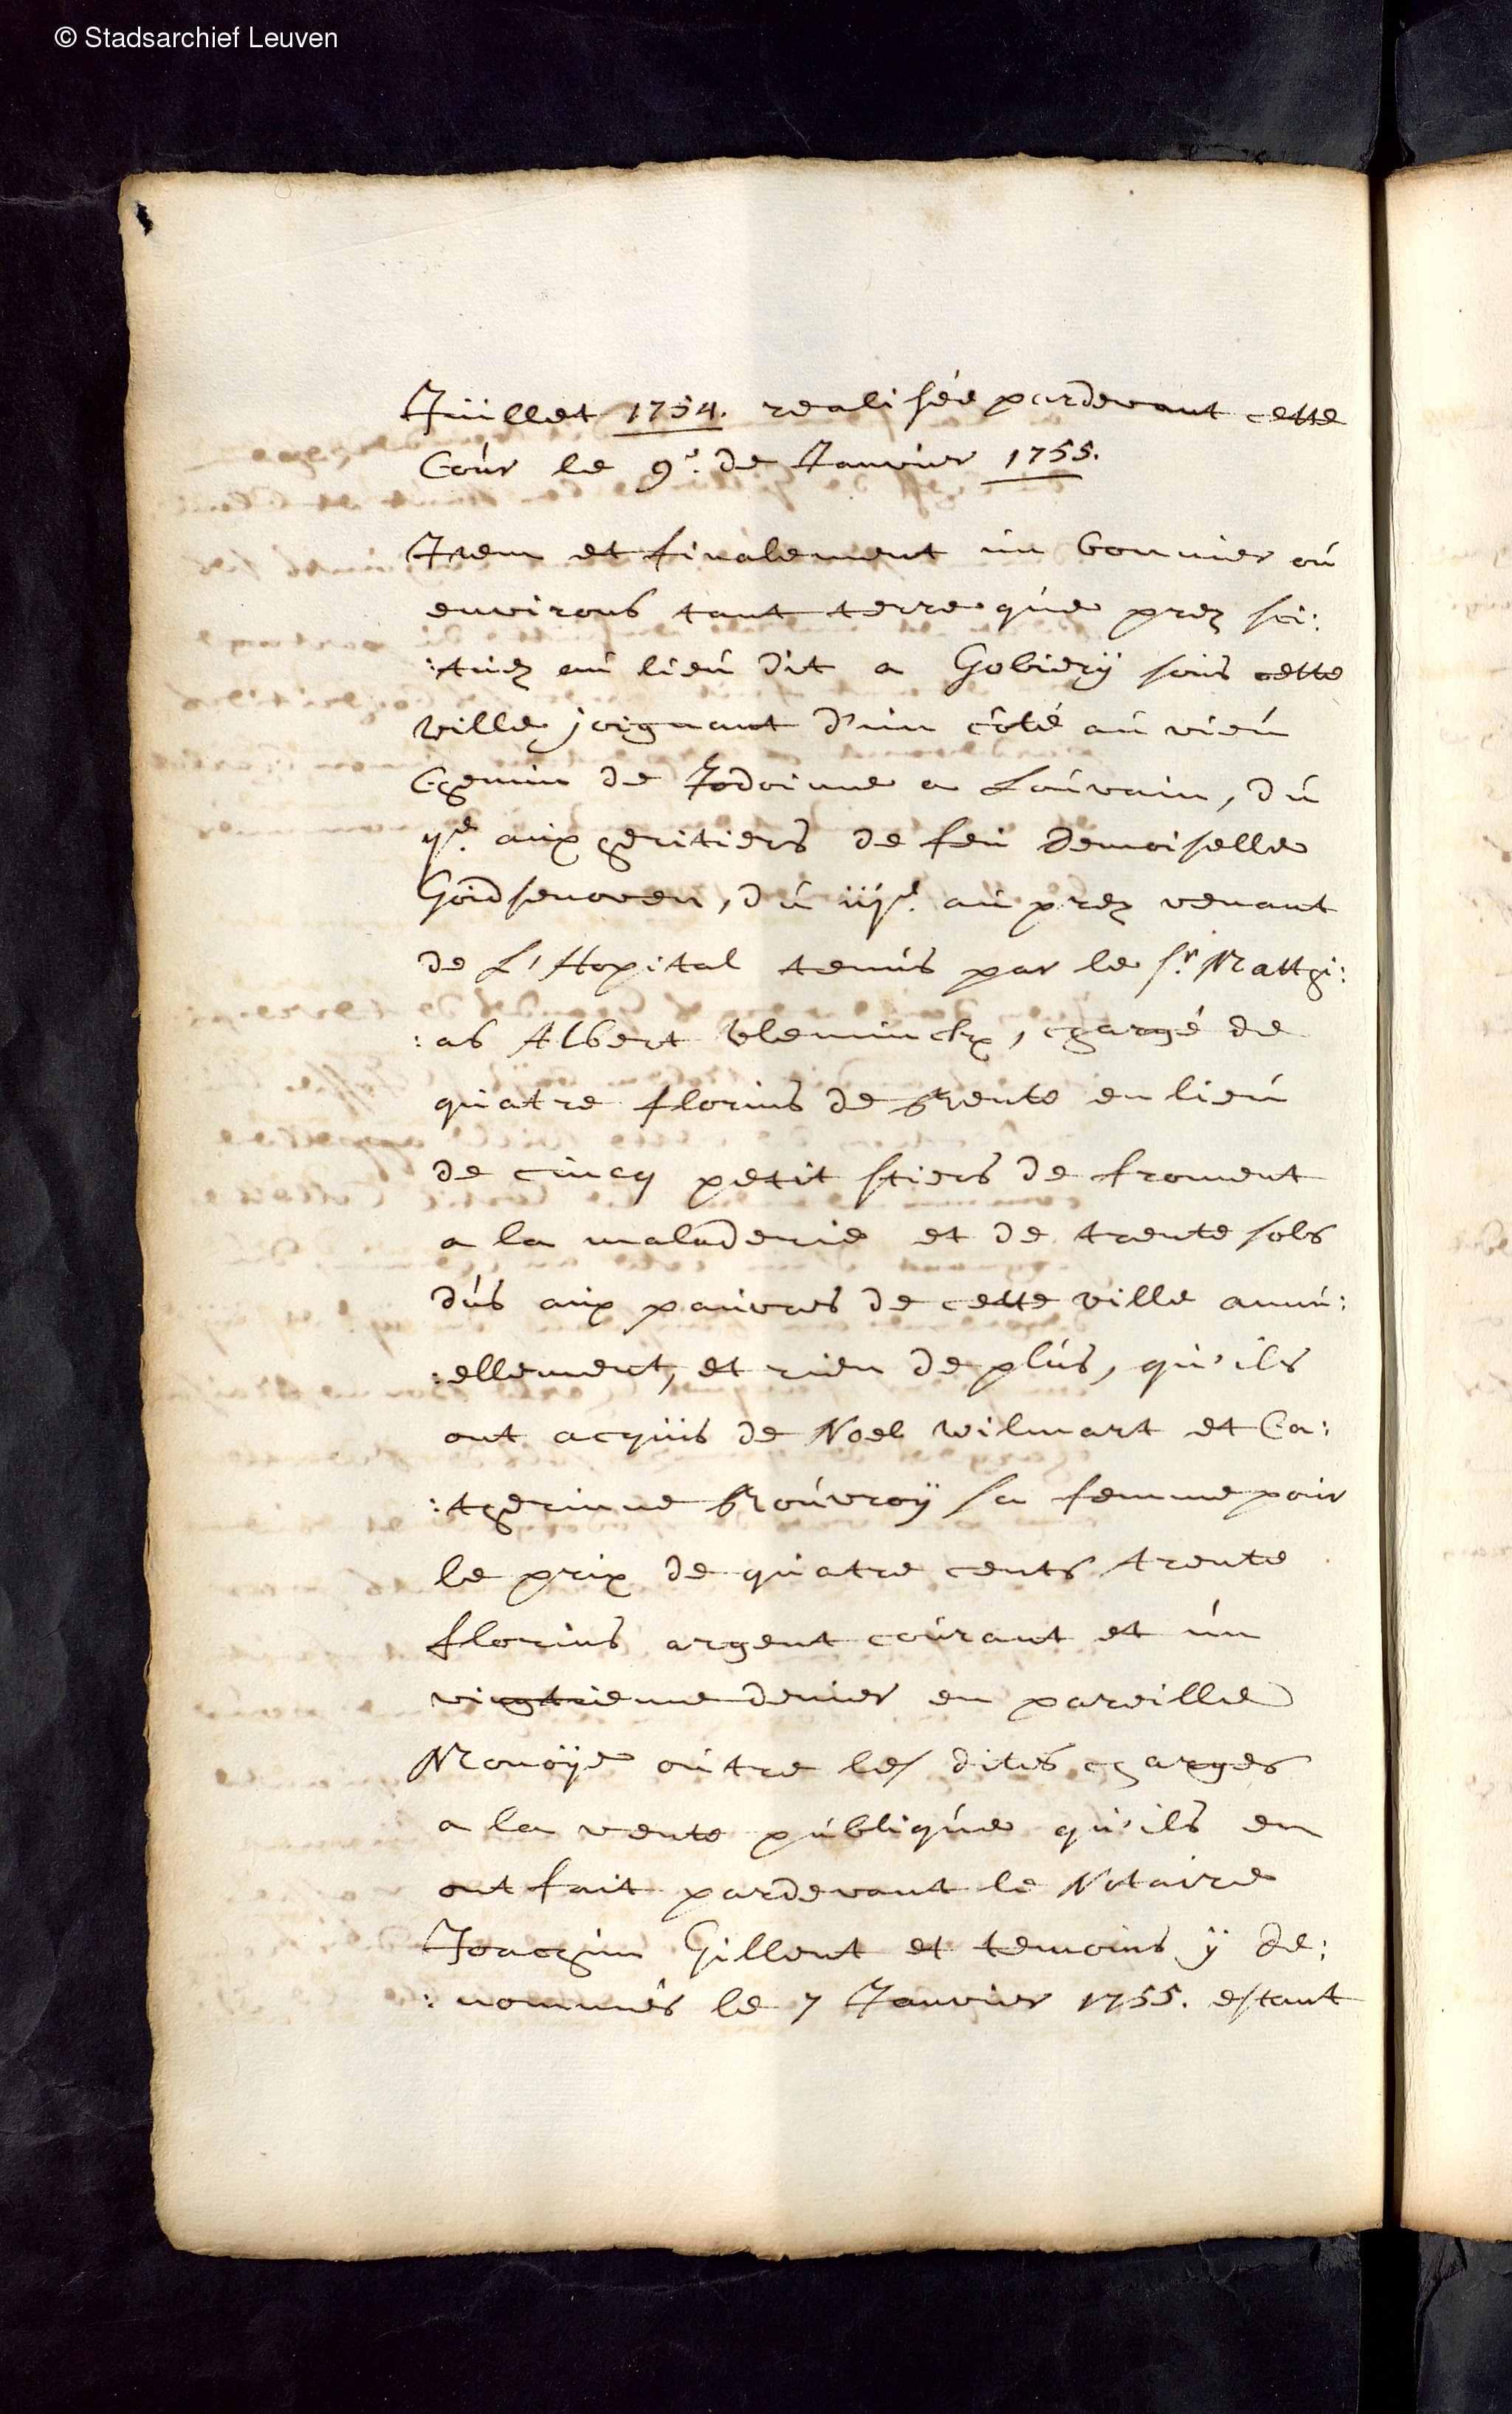 © Stadsarchief Leuven
Juillet 1754. realisée pardevant cette
Cour le 9e. de Janvier 1755.
Item et finalement un bonnier ou
environs tant terre que prez sci:
:tuez au lieu dit a Gobiery sous cette
ville joignant d'un côté au vieu
Chemin de Jodoinne a Louvain, du
ije. aux heritiers de feu Demoiselle
Goidsenoven, du iije. au prez venant
de L'Hopital tenus par le Sr. Matthi:
:as Albert Vleminckx, chargé de
quatre florins de Rente en lieu
de cincq petit stiers de froment
a la maladerie et de trente sols
dus aux pauvres de cette ville annu:
:ellement, et rien de plus, qu'ils
ont acquis de Noel Wilmart et Ca:
:therinne Rouvroy sa femme pour
le prix de quatre cents trente
florins argent courant et un
vingtrieme denier en pareille
Monoÿe outre les dites charges
a la vente publique qu'ils en
ont fait pardevant le Notaire
Joachim Gillent et temoins ÿ de:
:nommés le 7 Janvier 1755. estant